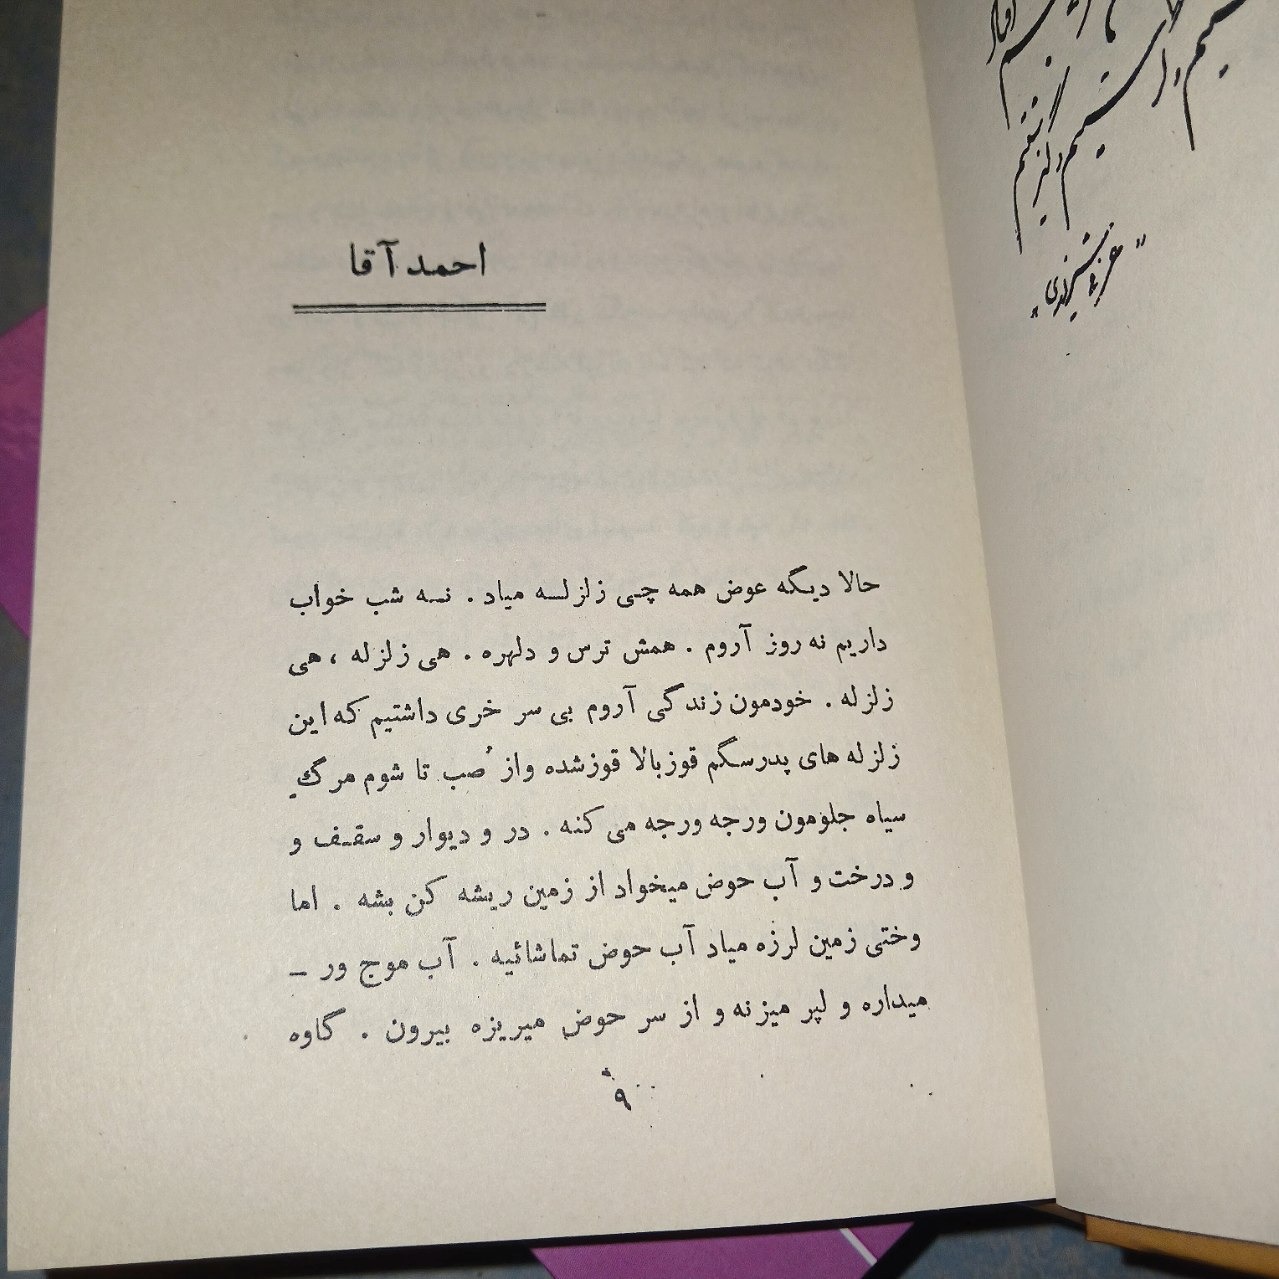 احمد آقا
حالا دیگه عوض همه چی زلزله میاد . نه شب خواب
داریم نه روز آروم . همش ترس و دلهره . هی زلزله ، هی
زلزله . خودمون زندگی آروم بی سر خری داشتیم که این
زلزله های پدرسگم قوز بالا قوز شده و از صُب تا شوم مرگ
سیاه جلومون ورجه ورجه می کنه . در و دیوار و سقف و
و درخت و آب حوض میخواد از زمین ریشه کن بشه . اما
وختی زمین لرزه میاد آب حوض تماشائیه . آب موج ور -
میداره و لپر میزنه و از سر حوض میریزه بیرون . گاوه
۹